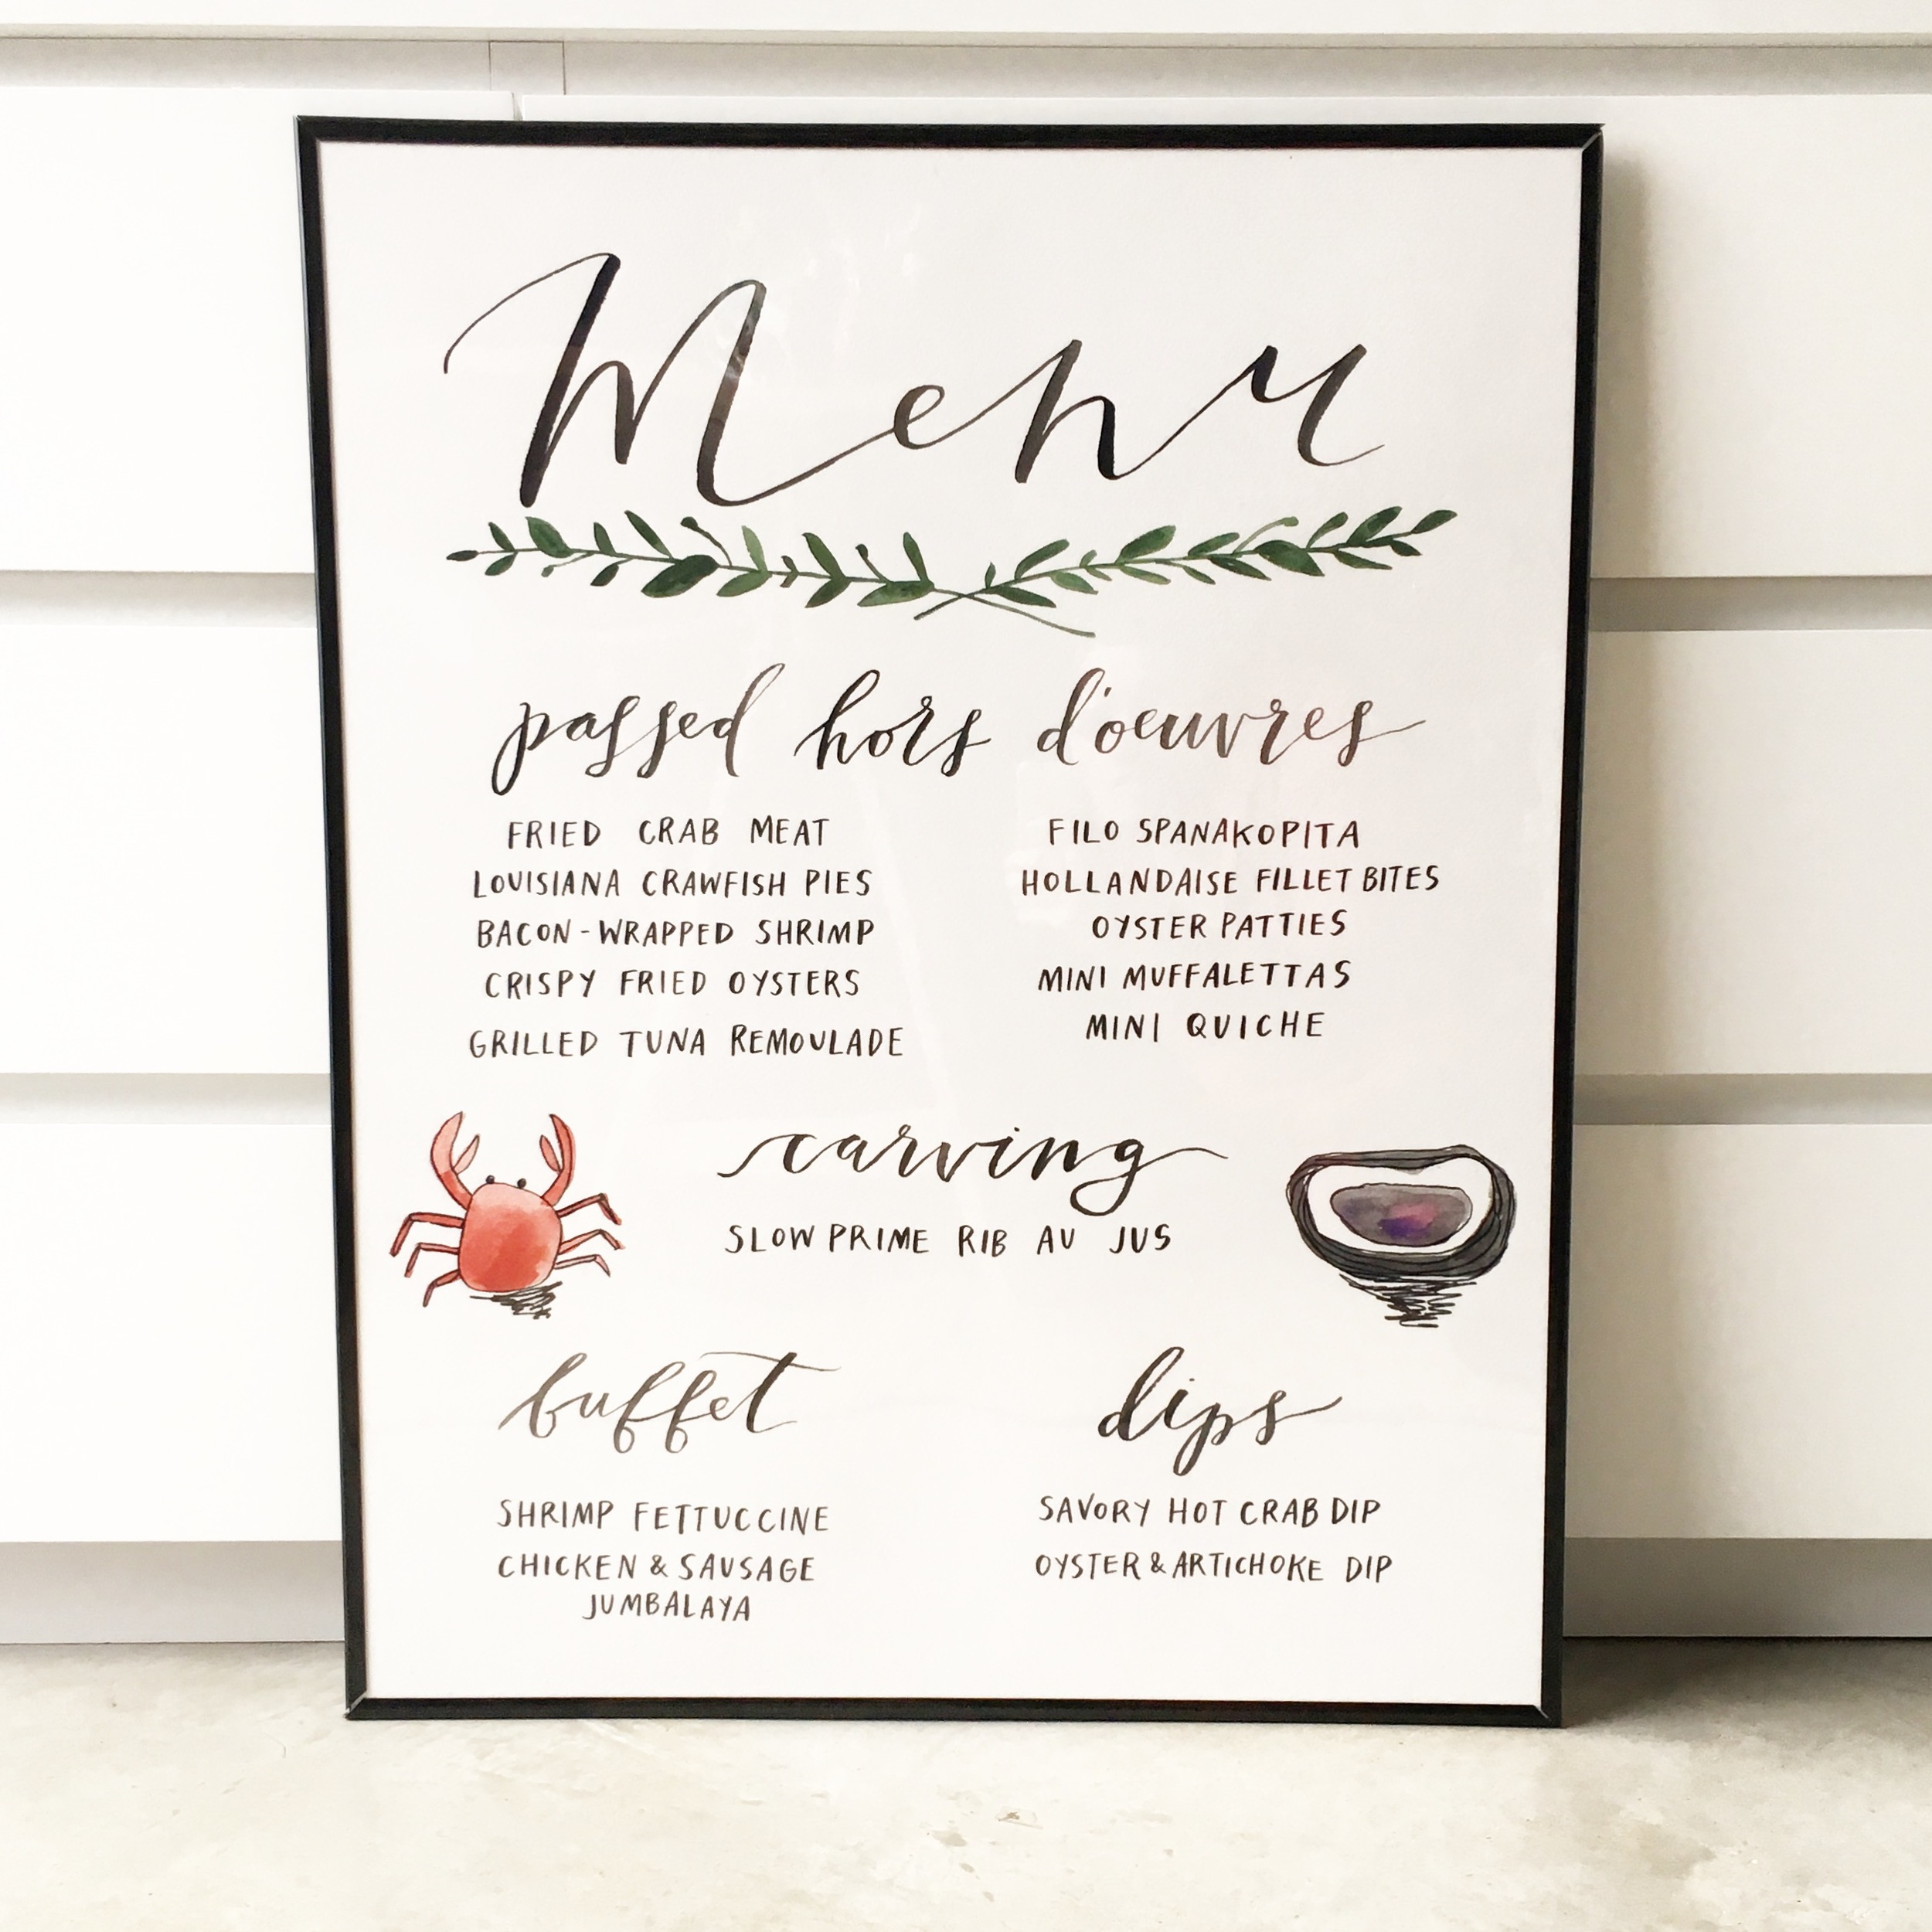 Menu
passed hors d'oeuvres
FRIED CRAB MEAT
LOUISIANA CRAWFISH PIES
BACON-WRAPPED SHRIMP
CRISPY FRIED OYSTERS
GRILLED TUNA REMOULADE
FILO SPANAKOPITA
HOLLANDAISE FILLET BITES
OYSTER PATTIES
MINI MUFFALETTAS
MINI QUICHE
carving
SLOW PRIME RIB AU JUS
buffet
SHRIMP FETTUCCINE
CHICKEN & SAUSAGE
JUMBALAYA
dips
SAVORY HOT CRAB DIP
OYSTER & ARTICHOKE DIP